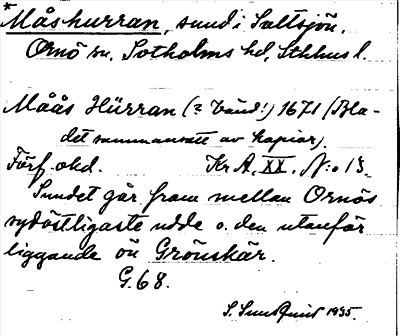 *Måshurran, sund i Saltsjön.
Ornö sn. Sotholms hd, Sthlms l.
Måås Hürran (? 1671 (Bla-
det sammansatt av kopior).
Förf. okd. Kr A. XX. N:o 13.
Sundet går fram mellan Ornös
sydöstligaste udde o. den utanför
liggande ön Grönskär.
G.68.
S. Sundquist 1935.